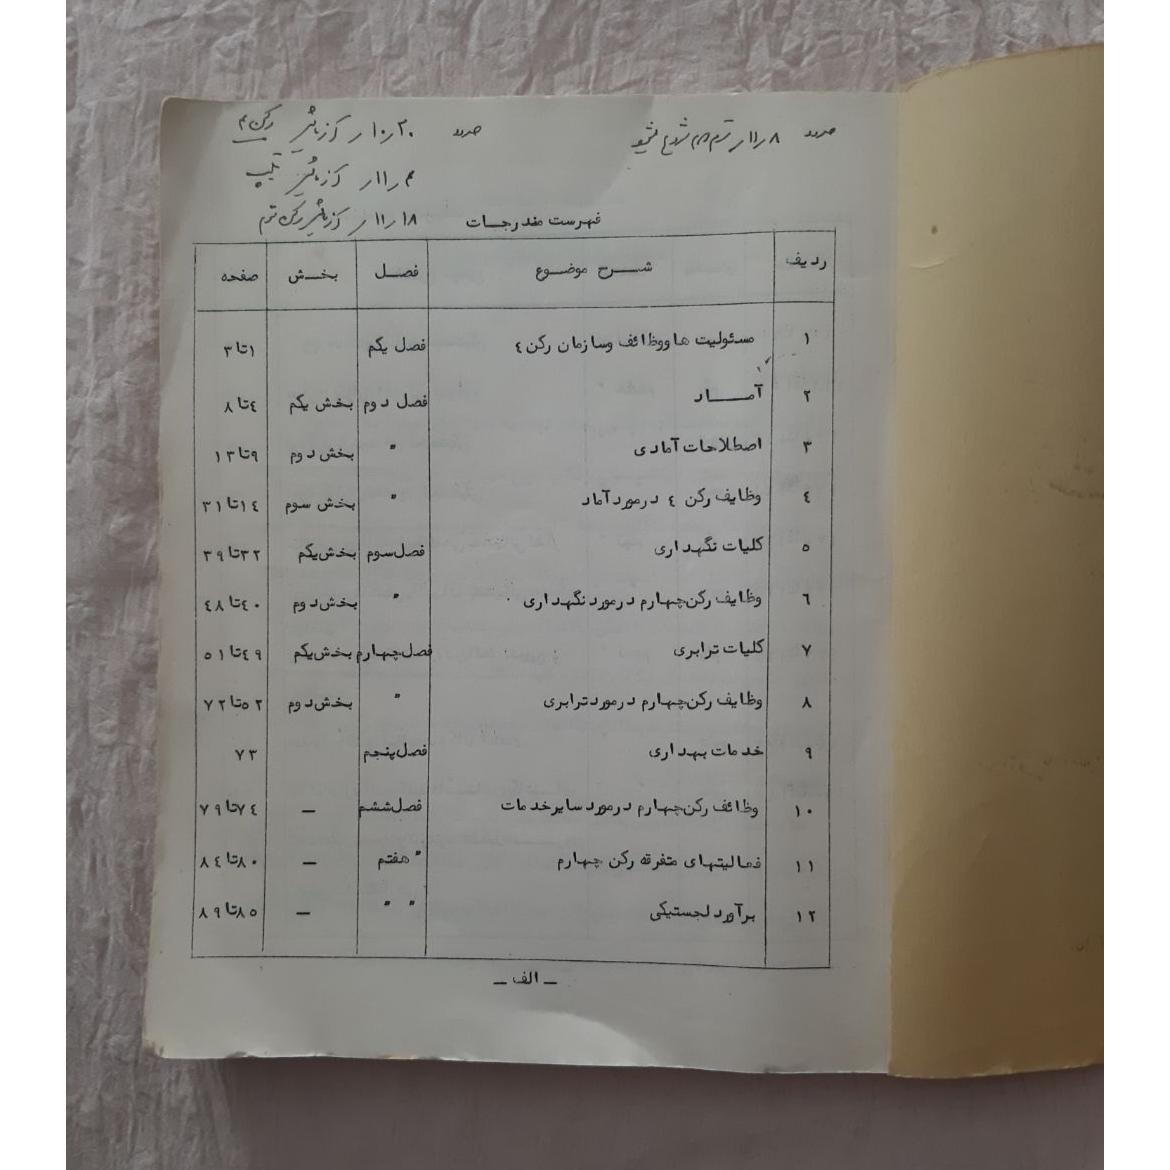 ۸ ر ۱۱ ر
۳۰ ر ۱۰ ر رکن ۴
۴ ر ۱۱ ر تیپ
۱۸ ر ۱۱ ر
فهرست مندرجات
ردیف شرح موضوع فصل بخش صفحه
۱ مسئولیت ها ووظائف وسازمان رکن ٤ فصل یکم ۱تا۳
۲ آماد فصل دوم بخش یکم ٤تا۸
۳ اصطلاحات آمادی " بخش دوم ۹تا۱۳
٤ وظایف رکن ٤ درمورد آماد " بخش سوم ۱٤تا۳۱
۵ کلیات نگهداری فصل سوم بخش یکم ۳۲تا۳۹
٦ وظایف رکن چهارم درمورد نگهداری " بخش دوم ٤۰تا٤۸
۷ کلیات ترابری فصل چهارم بخش یکم ٤۹تا۵۱
۸ وظایف رکن چهارم درمورد ترابری " بخش دوم ۵۲تا۷۲
۹ خدمات بهداری فصل پنجم ۷۳
۱۰ وظائف رکن چهارم درمورد سایر خدمات فصل ششم – ۷٤تا۷۹
۱۱ فعالیتهای متفرقه رکن چهارم " هفتم – ۸۰تا۸٤
۱۲ برآورد لجستیکی " " – ۸۵تا۸۹
– الف –